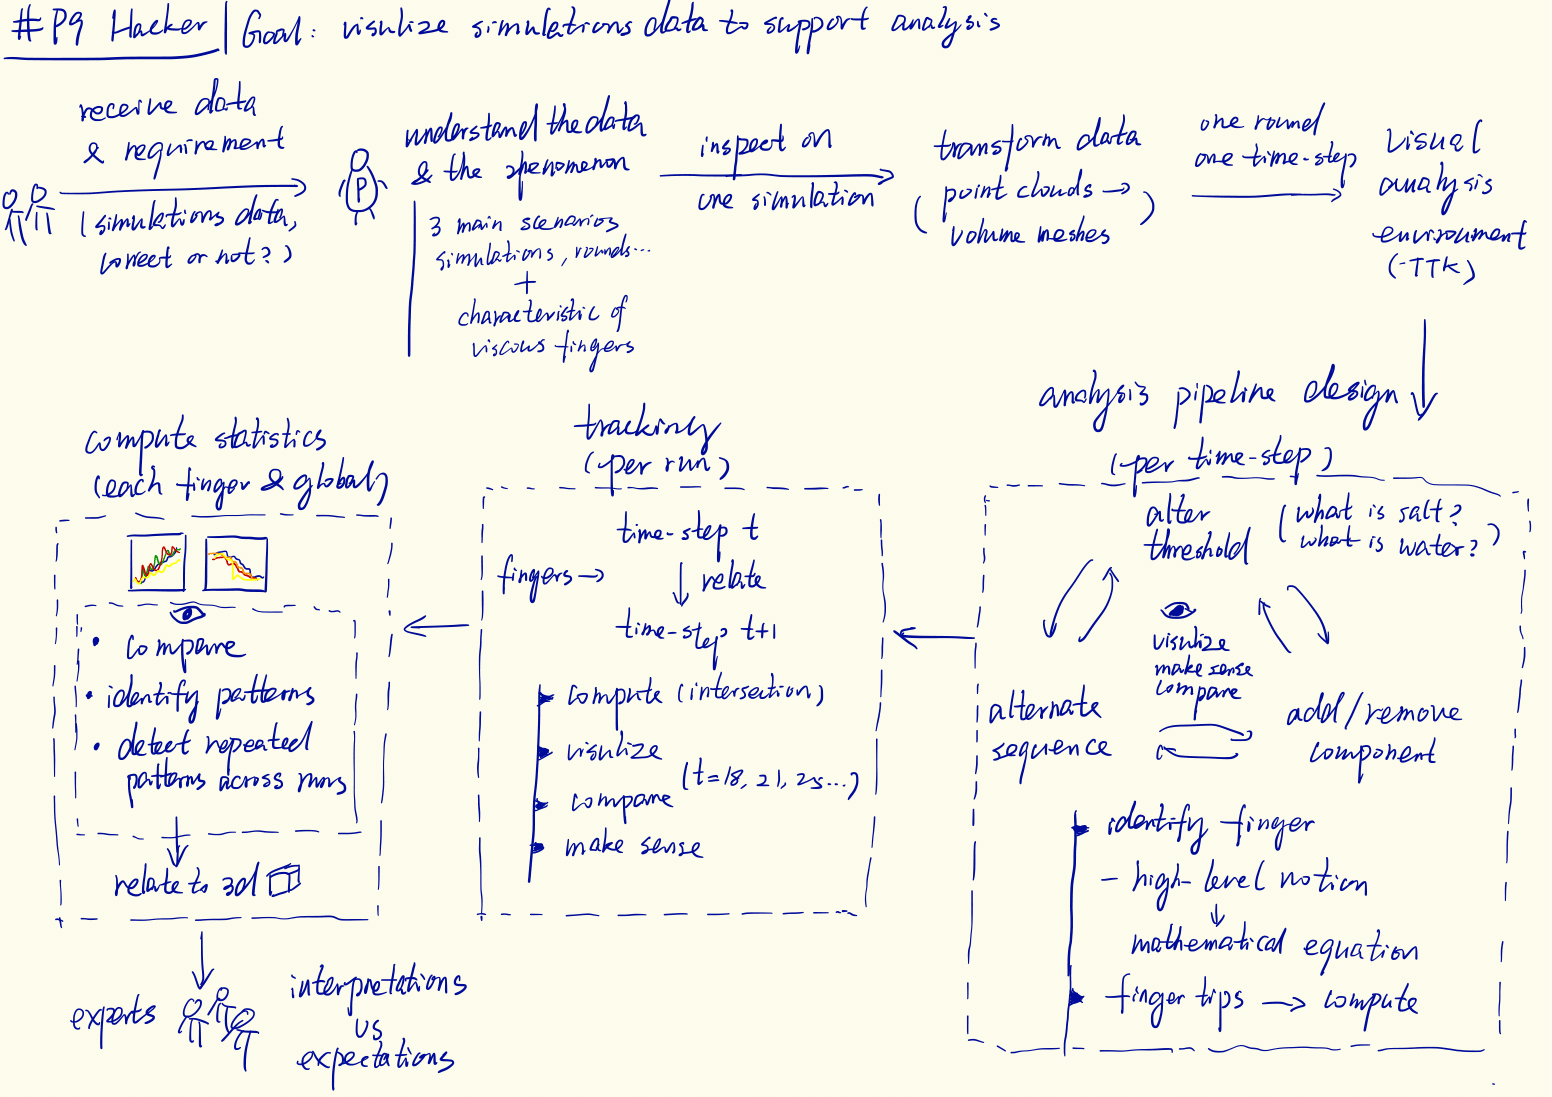 #P9 Hacker | Goal: visulize simulations data to support analysis
receive data
& requirement
(simulations data,
correct or not?)
P
understand the data
& the phenomenon
3 main scenarios
simulations, rounds...
+
characteristic of
viscous fingers
inspect on
one simulation
transform data
(point clouds →
volume meshes)
one round
one time-step
visual
analysis
environment
(-TTK)
analysis pipeline design
(per time-step)
alter
threshold
(what is salt?
what is water?)
visulize
make sense
compare
alternate
sequence
add/remove
component
identify finger
- high-level notion
↓
mathematical equation
finger tips → compute
tracking
(per run)
time-step t
fingers →
↓ relate
time-step t+1
compute (intersection)
visulize
(t=18, 21, 25...)
compare
make sense
compute statistics
(each finger & global)
• compare
• identify patterns
• detect repeated
patterns across runs
relate to 3d
experts
interpretations
vs
expectations